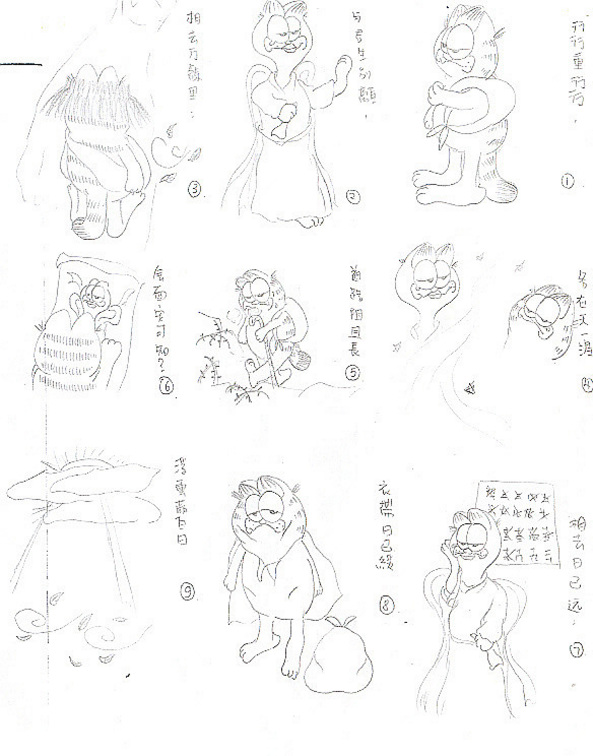 行行重行行，
①
与君生别離，
②
相去万餘里；
③
各在天一涯
④
道路阻且長
⑤
會面安可知？
⑥
相去日已远，
⑦
衣帶日已緩
⑧
浮雲蔽白日
⑨